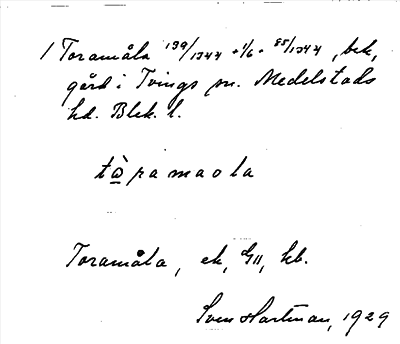 1 Toramåla 139/1344 + 1/6 + 85/1344, bek,
gård i Tvings sn. Medelstads
hd. Blek. l.
tòramaola
Toramåla, ek, GII, kb.
Sven Hartman, 1929